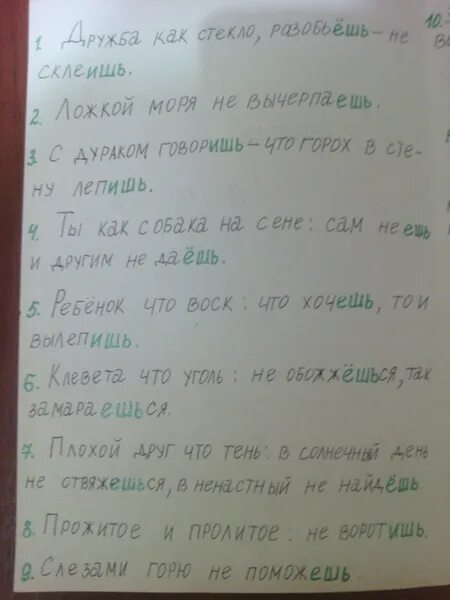 1. Дружба как стекло, разобьёшь – не
склеишь.
2. Ложкой моря не вычерпаешь.
3. С дураком говоришь – что горох в сте-
ну лепишь.
4. Ты как собака на сене: сам не ешь
и другим не даёшь.
5. Ребёнок что воск: что хочешь, то и
вылепишь.
6. Клевета что уголь: не обожжёшься, так
замараешься.
7. Плохой друг что тень: в солнечный день
не отвяжешься, в ненастный не найдёшь
8. Прожитое и пролитое: не воротишь.
9. Слезами горю не поможешь.
10.